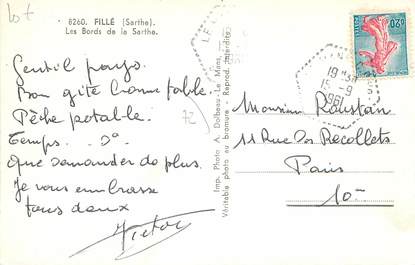 lot
8260. FILLÉ (Sarthe).
Les Bords de la Sarthe.
Gentil pays.
Bon gîte bonne table.
Pêche potable.
Temps
Que demander de plus.
Je vous embrasse
tous deux
Victor
72
Imp. Photo A. Dolbeau - Le Mans.
Véritable photo au bromure - Reprod. interdite.
Monsieur Roustan
11 Rue des Recollets
Paris
10-
19 H
15-9
1961
0,20
POSTES